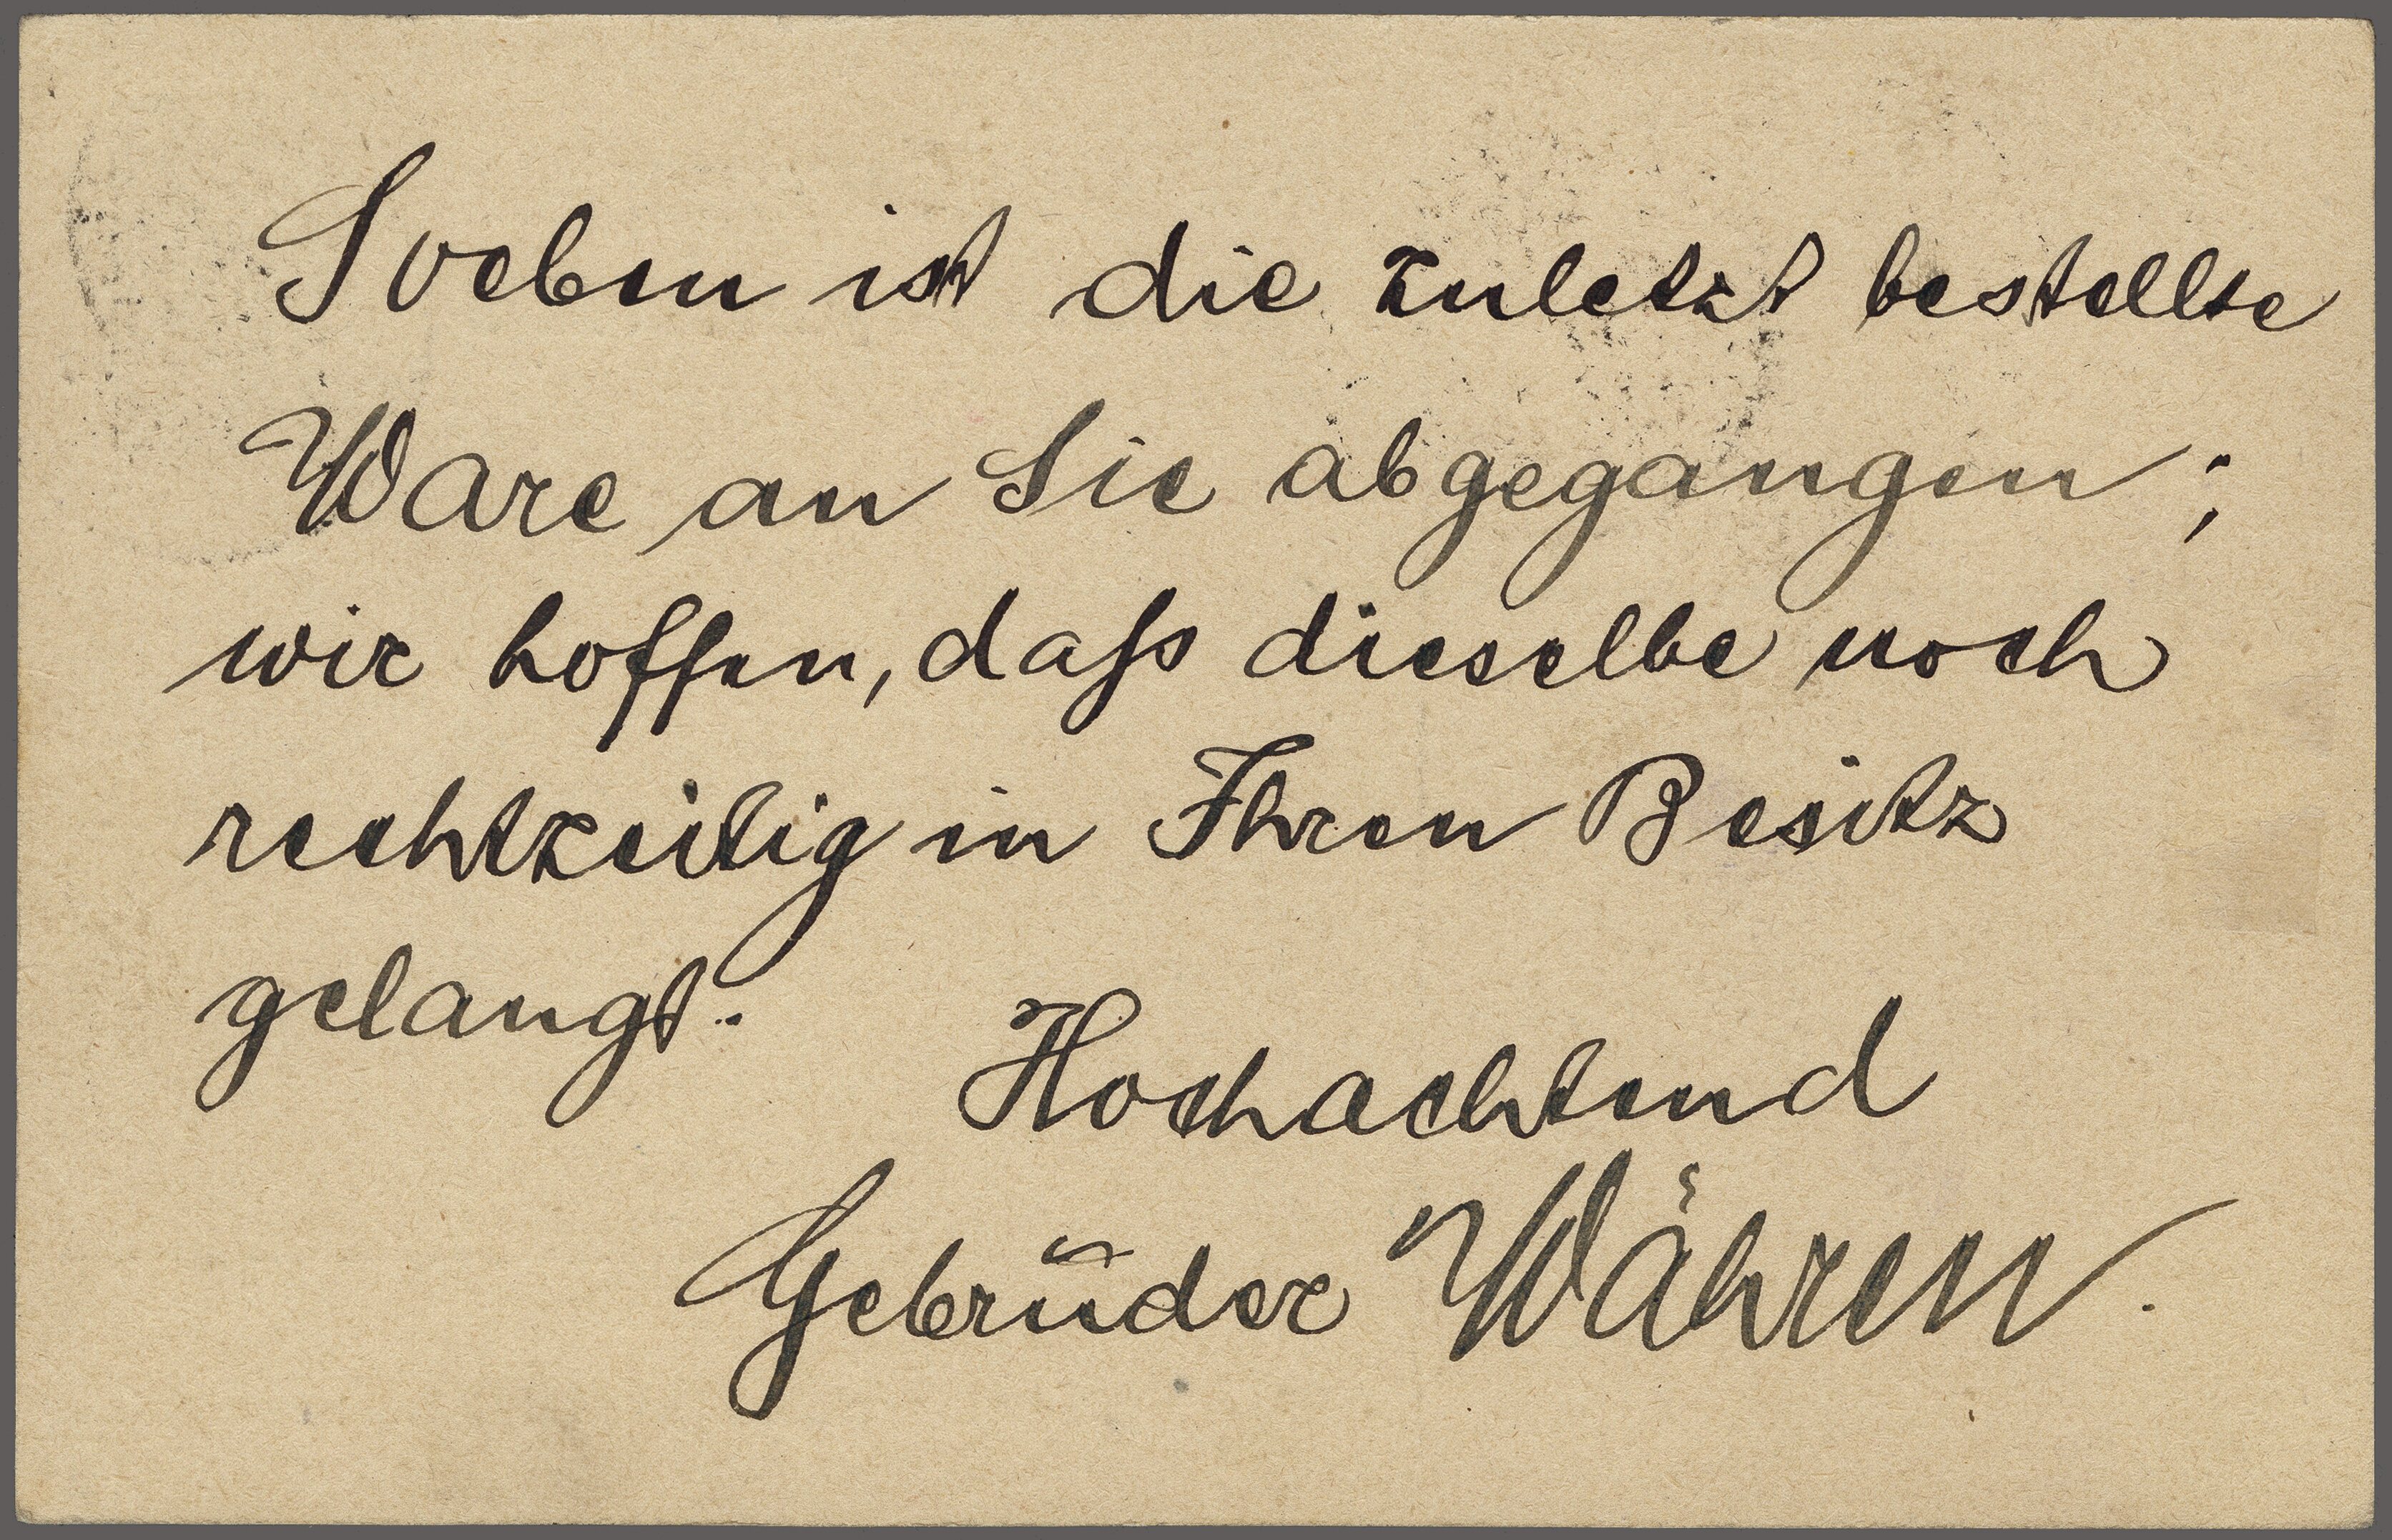 Soeben ist die zuletzt bestellte
Ware an Sie abgegangen;
wir hoffen, daß dieselbe noch
rechtzeitig in Ihren Besitz
gelangt.
Hochachtend
Gebrüder Währen.